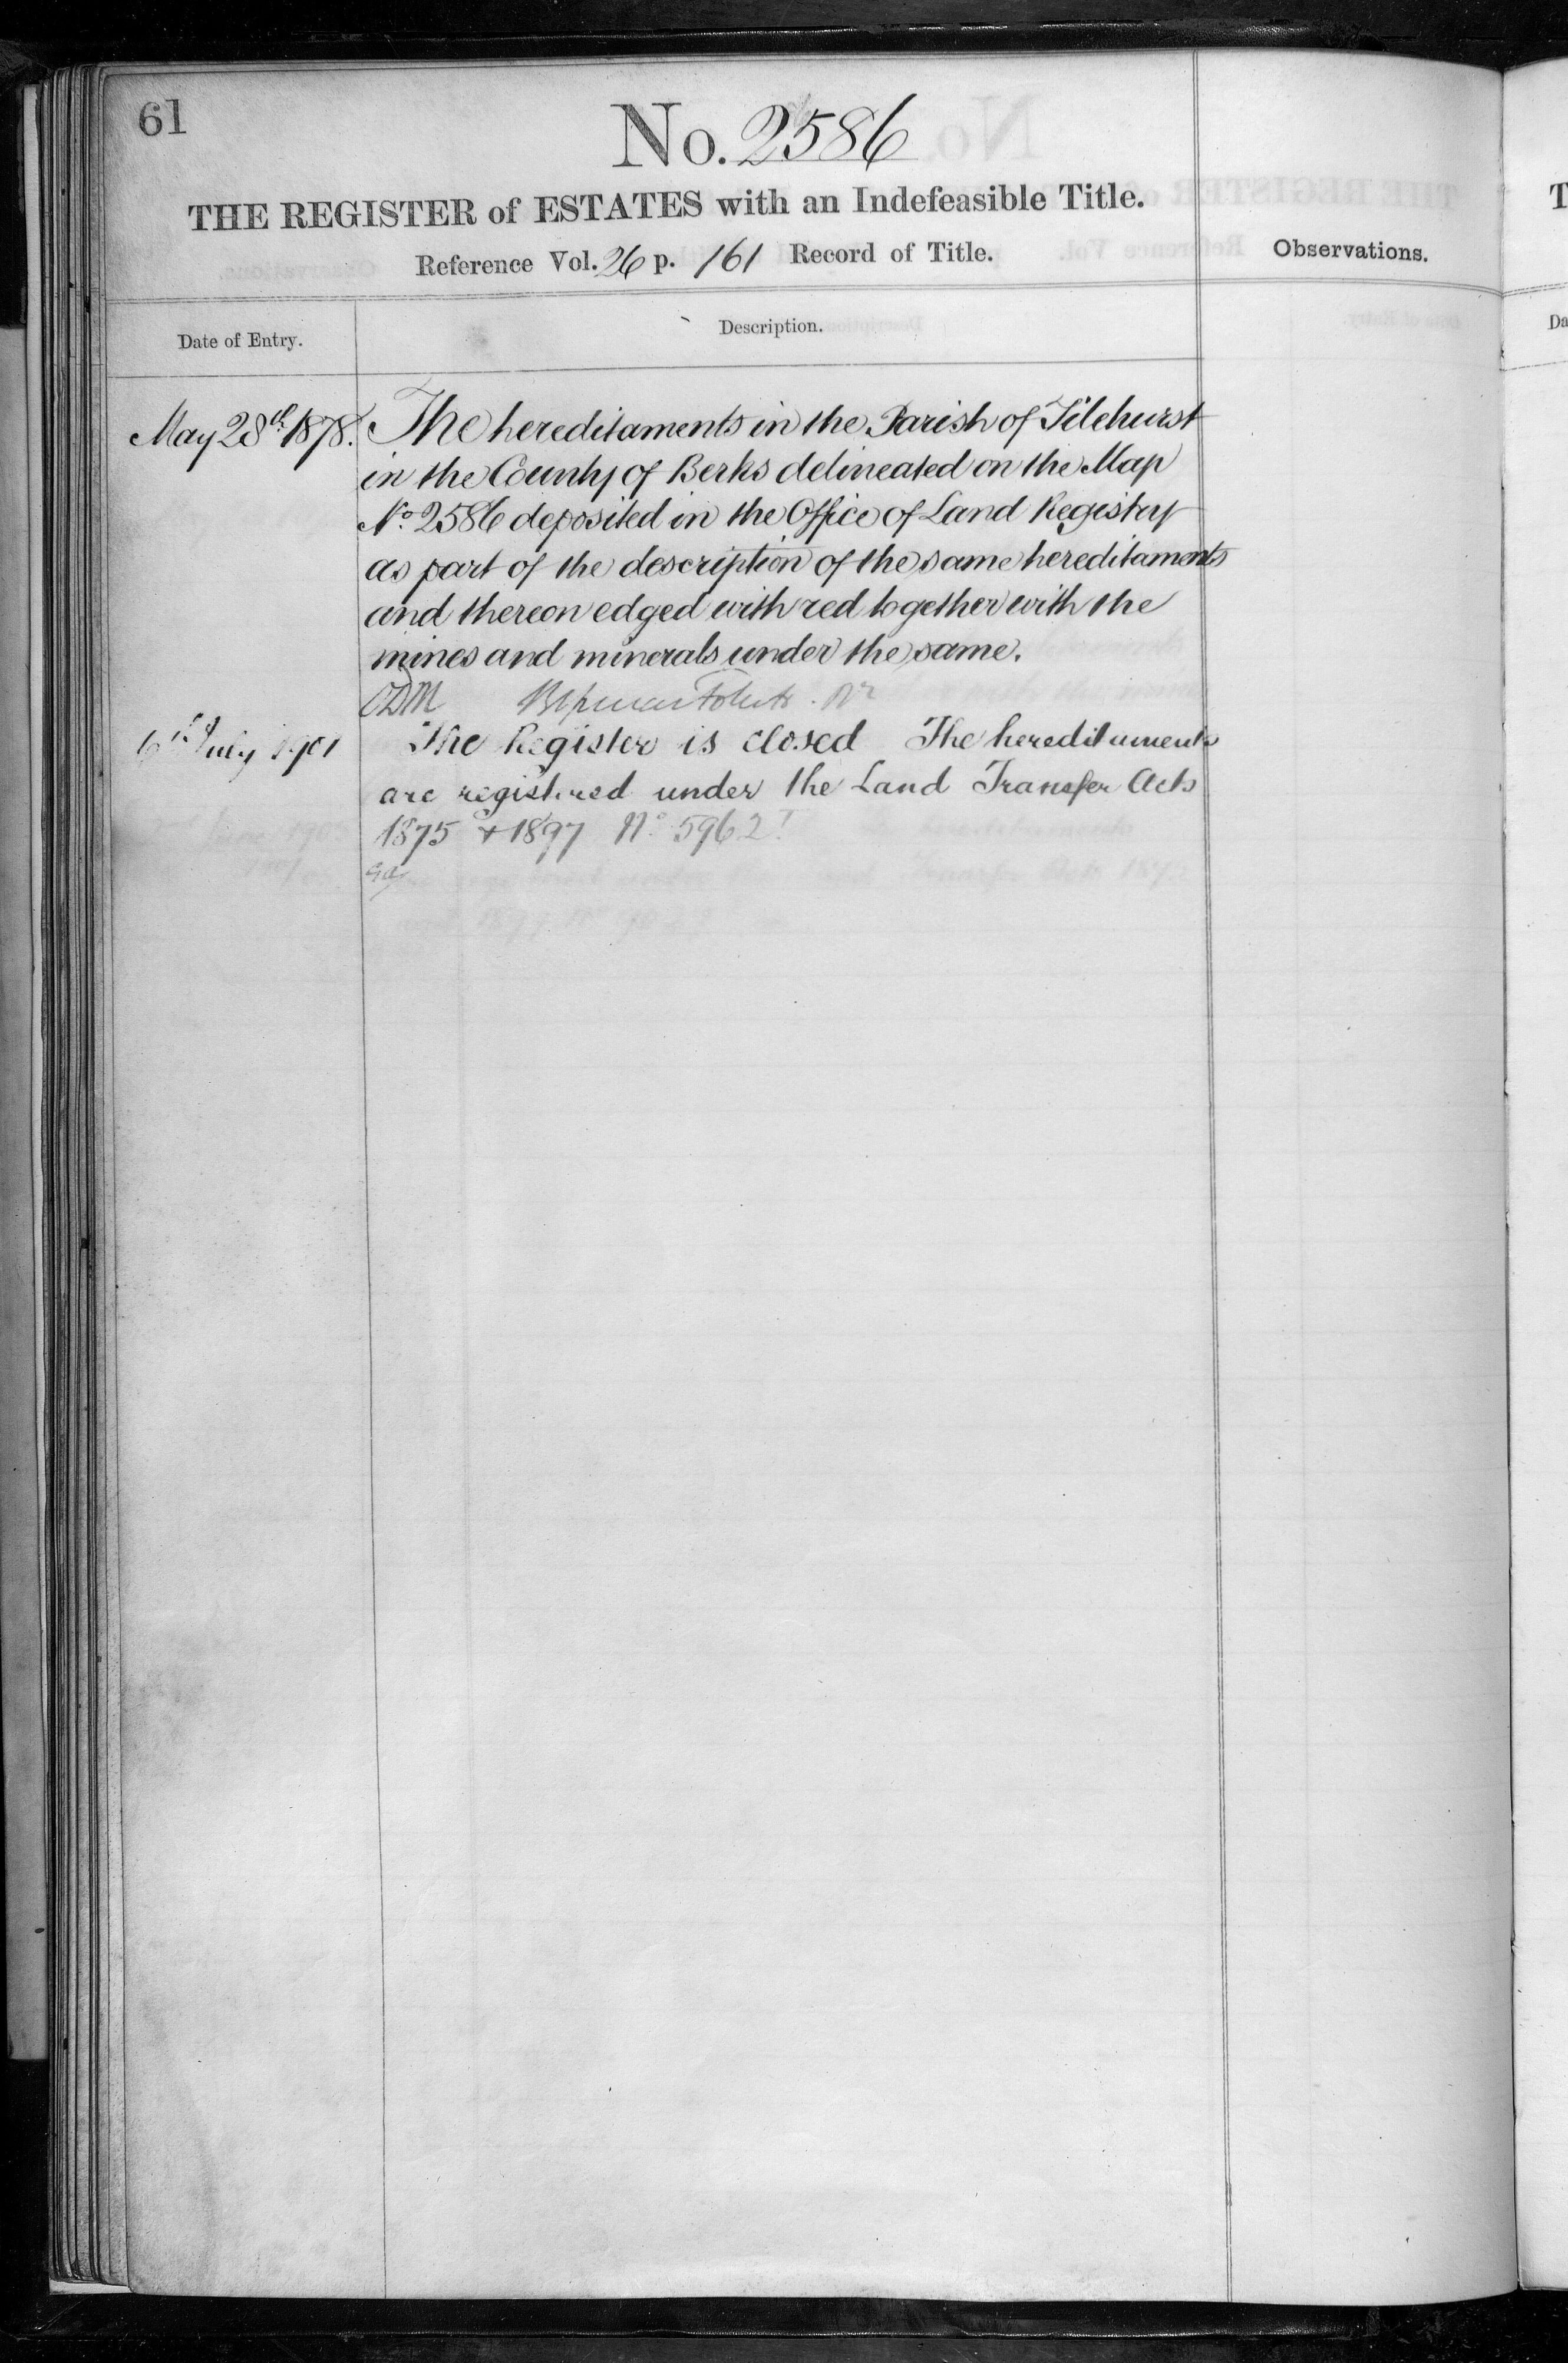 61
No. 2586
THE REGISTER of ESTATES with an Indefeasible Title.
Reference Vol. 26 p. 161 Record of Title.
Observations.
Date of Entry.
Description.
May 28th 1878. The hereditaments in the Parish of Tilehurst
in the County of Berks delineated on the Map
No. 2586 deposited in the Office of Land Registry
as part of the description of the same hereditaments
and thereon edged with red together with the
mines and minerals under the same.
6th July 1901 The Register is closed The hereditaments
are registered under the Land Transfer Acts
1875 + 1897 No. 5962